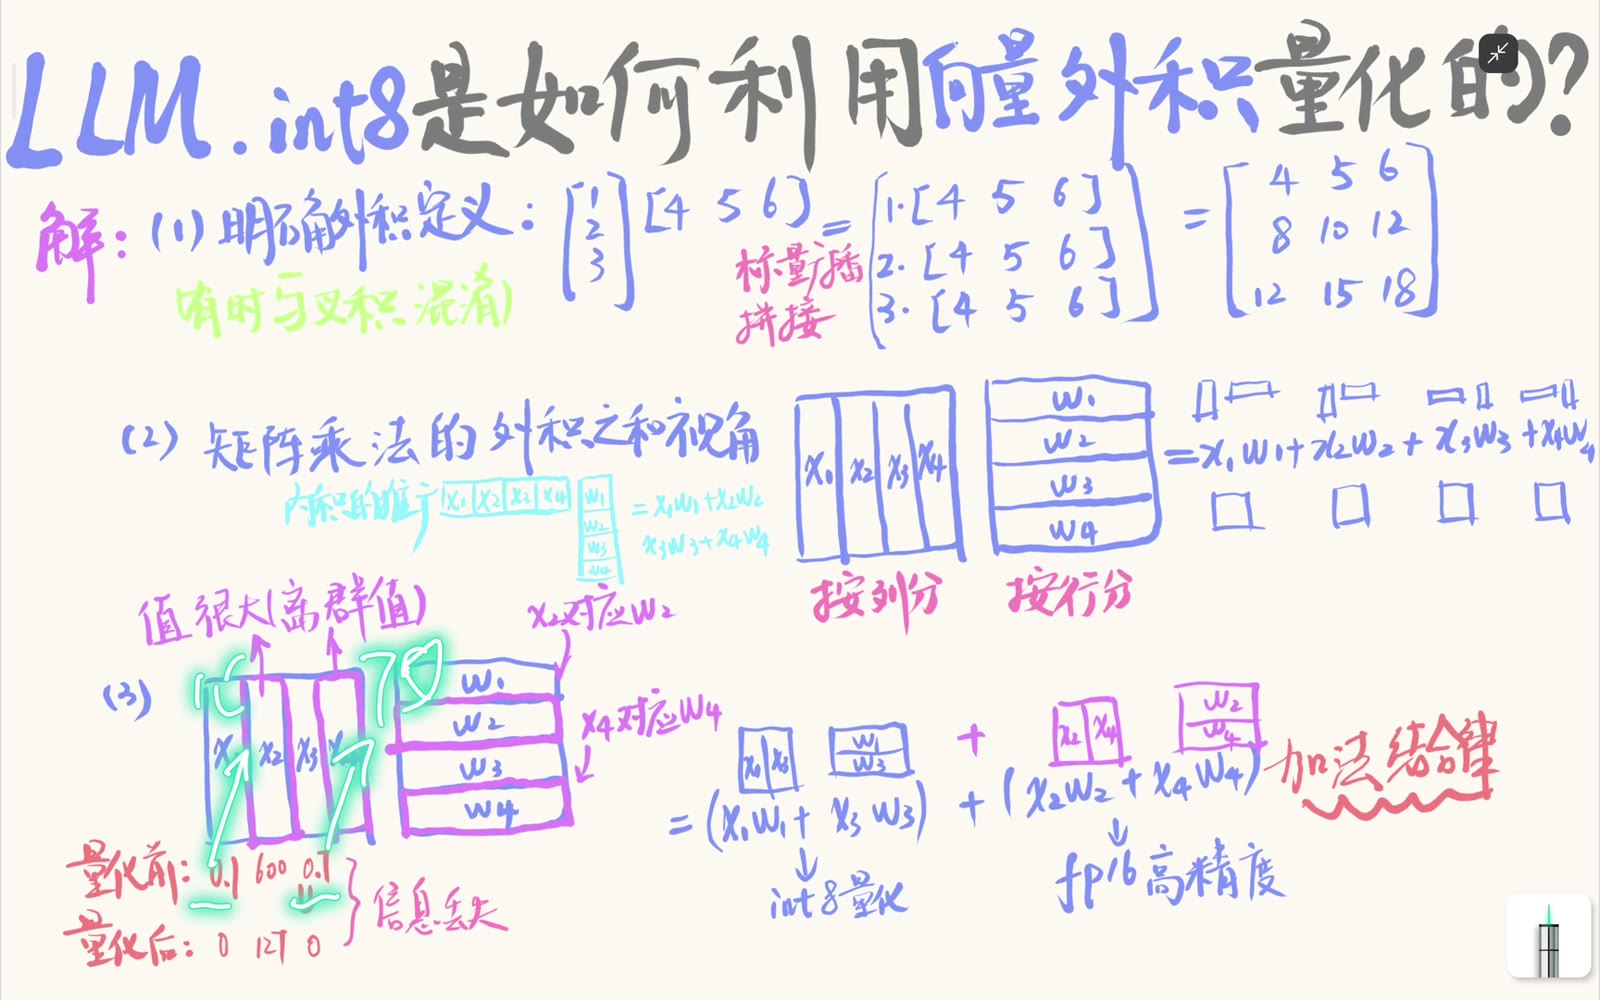 LLM.int8是如何利用向量外积量化的?
解: (1) 明确外积定义: [1 2 3] [4 5 6] = [1·[4 5 6] 2·[4 5 6] 3·[4 5 6]] = [4 5 6 8 10 12 12 15 18]
标量广播
拼接
有时与叉积混淆)
(2) 矩阵乘法的外积之和视角
x1 x2 x3 x4
w1
w2
w3
w4
=x1w1+x2w2+x3w3+x4w4
内积的推广 x1 x2 x3 x4
w1
w2
w3
w4
=x1w1+x2w2
x3w3+x4w4
按列分
按行分
值很大(离群值)
x2对应w2
(3)
x1 x2 x3
w1
w2
w3
w4
x4对应w4
x1 x3
w1
w3
+
x2 x4
w2
w4
=(x1w1+x3w3)+(x2w2+x4w4)
加法结合律
int8量化
fp16高精度
量化前: 0.1 600 0.1
量化后: 0 127 0
信息丢失